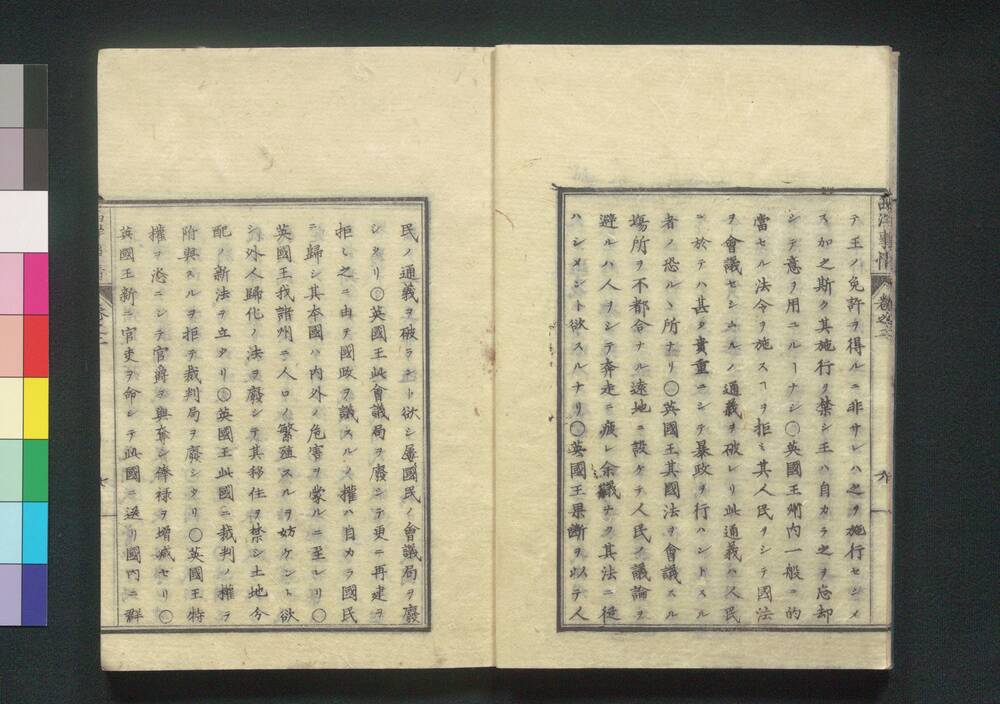 西洋事情
巻之二
六
テ王ノ免許ヲ得ルニ非サレハ之ヲ施行セシメ
ス加之斯ク其施行ヲ禁シ王ハ自カラ之ヲ忘却
シテ意ヲ用ユルヿナシ〇英國王州内一般ニ的
當セル法令ヲ施スヿヲ拒ミ其人民ヲシテ國法
ヲ會議セシムルノ通義ヲ破レリ此通義ハ人民
ニ於テハ甚タ貴重ニシテ暴政ヲ行ハントスル
者ノ恐ルヽ所ナリ〇英國王其國法ヲ會議スル
塲所ヲ不都合ナル遠地ニ設ケテ人民ノ議論ヲ
避ルハ人ヲシテ奔走ニ疲レ余儀ナク其法ニ從
ハシメント欲スルナリ〇英國王果斷ヲ以テ人
民ノ通義ヲ破ラント欲シ屢國民ノ會議局ヲ廢
シタリ〇英國王此會議局ヲ廢シテ更ニ再建ヲ
拒ミ之ニ由テ國政ヲ議スルノ權ハ自カラ國民
ニ歸シ其本國ハ内外ノ危害ヲ蒙ルニ至レリ〇
英國王我諸州ニ人口ノ繁殖スルヲ妨ケント欲
シ外人歸化ノ法ヲ廢シテ其移住ヲ禁シ土地分
配ノ新法ヲ立タリ〇英國王此國ニ裁判ノ權ヲ
附與スルヲ拒テ裁判局ヲ廢シタリ〇英國王特
權ヲ恣ニシテ官爵ヲ與奪シ俸禄ヲ増減セリ〇
英國王新ニ官吏ヲ命シテ此國ニ送リ國内ニ群